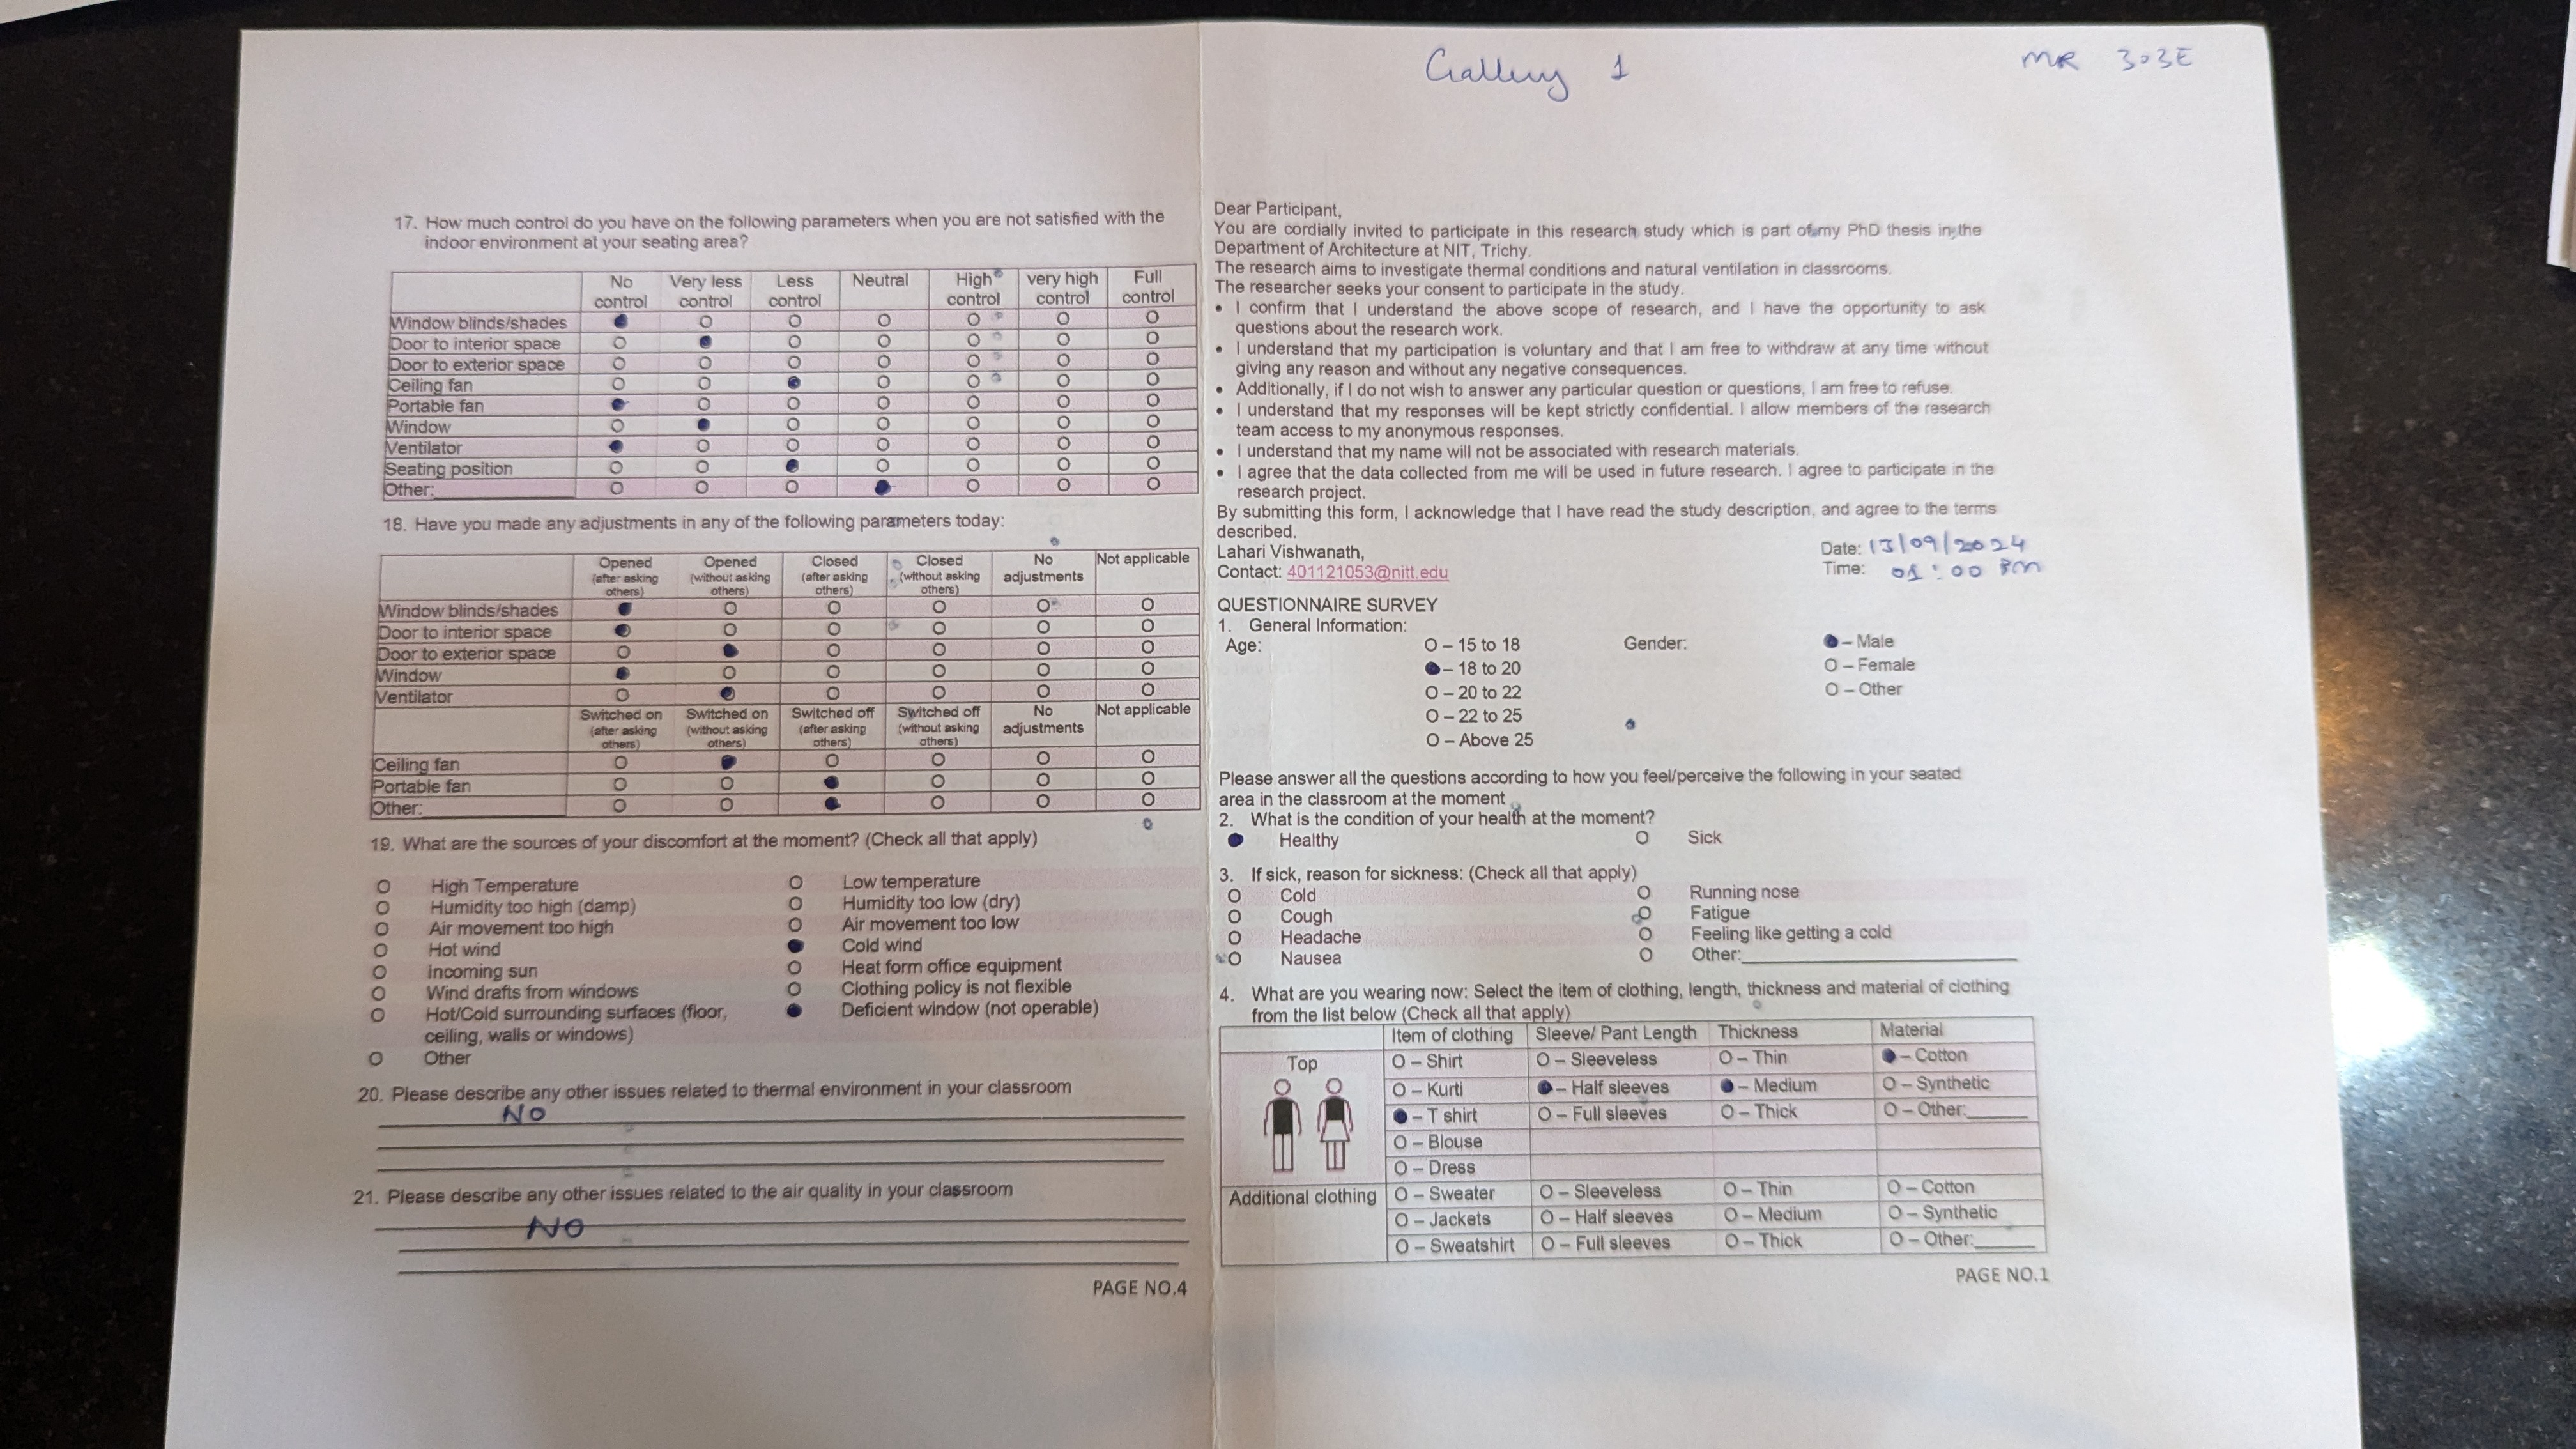 Gallery 1
MR 303E
17. How much control do you have on the following parameters when you are not satisfied with the
indoor environment at your seating area?
No control Very less control Less control Neutral High control very high control Full control
Window blinds/shades ● O O O O O O
Door to interior space O ● O O O O O
Door to exterior space O O O O O O O
Ceiling fan O O ● O O O O
Portable fan ● O O O O O O
Window O ● O O O O O
Ventilator ● O O O O O O
Seating position O O ● O O O O
Other: O O O ● O O O
18. Have you made any adjustments in any of the following parameters today:
Opened (after asking others) Opened (without asking others) Closed (after asking others) Closed (without asking others) No adjustments Not applicable
Window blinds/shades ● O O O O O
Door to interior space ● O O O O O
Door to exterior space O ● O O O O
Window ● O O O O O
Ventilator O ● O O O O
Switched on (after asking others) Switched on (without asking others) Switched off (after asking others) Switched off (without asking others) No adjustments Not applicable
Ceiling fan O ● O O O O
Portable fan O O ● O O O
Other: O O ● O O O
19. What are the sources of your discomfort at the moment? (Check all that apply)
O High Temperature O Low temperature
O Humidity too high (damp) O Humidity too low (dry)
O Air movement too high O Air movement too low
O Hot wind ● Cold wind
O Incoming sun O Heat form office equipment
O Wind drafts from windows O Clothing policy is not flexible
O Hot/Cold surrounding surfaces (floor, ● Deficient window (not operable)
ceiling, walls or windows)
O Other
20. Please describe any other issues related to thermal environment in your classroom
NO
21. Please describe any other issues related to the air quality in your classroom
NO
PAGE NO.4
Dear Participant,
You are cordially invited to participate in this research study which is part of my PhD thesis in the
Department of Architecture at NIT, Trichy.
The research aims to investigate thermal conditions and natural ventilation in classrooms.
The researcher seeks your consent to participate in the study.
• I confirm that I understand the above scope of research, and I have the opportunity to ask
questions about the research work.
• I understand that my participation is voluntary and that I am free to withdraw at any time without
giving any reason and without any negative consequences.
• Additionally, if I do not wish to answer any particular question or questions, I am free to refuse.
• I understand that my responses will be kept strictly confidential. I allow members of the research
team access to my anonymous responses.
• I understand that my name will not be associated with research materials.
• I agree that the data collected from me will be used in future research. I agree to participate in the
research project.
By submitting this form, I acknowledge that I have read the study description, and agree to the terms
described.
Lahari Vishwanath, Date: 13/09/2024
Contact: 401121053@nitt.edu Time: 01:00 PM
QUESTIONNAIRE SURVEY
1. General Information:
Age: O – 15 to 18 Gender: ● – Male
● – 18 to 20 O – Female
O – 20 to 22 O – Other
O – 22 to 25
O – Above 25
Please answer all the questions according to how you feel/perceive the following in your seated
area in the classroom at the moment
2. What is the condition of your health at the moment?
● Healthy O Sick
3. If sick, reason for sickness: (Check all that apply)
O Cold O Running nose
O Cough O Fatigue
O Headache O Feeling like getting a cold
O Nausea O Other:
4. What are you wearing now: Select the item of clothing, length, thickness and material of clothing
from the list below (Check all that apply)
Item of clothing Sleeve/ Pant Length Thickness Material
Top O – Shirt O – Sleeveless O – Thin ● – Cotton
O – Kurti ● – Half sleeves ● – Medium O – Synthetic
● – T shirt O – Full sleeves O – Thick O – Other:
O – Blouse
O – Dress
Additional clothing O – Sweater O – Sleeveless O – Thin O – Cotton
O – Jackets O – Half sleeves O – Medium O – Synthetic
O – Sweatshirt O – Full sleeves O – Thick O – Other:
PAGE NO.1